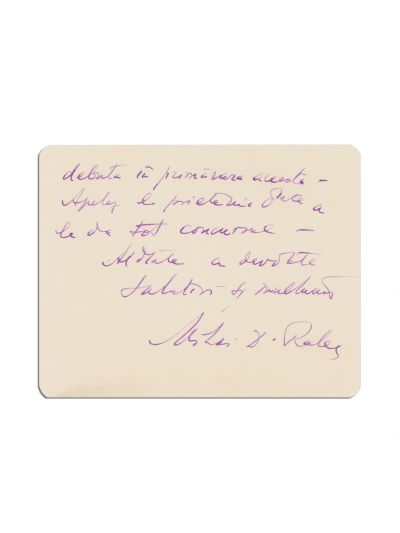 debuta în primăvara aceasta –
Apelez la prietenia Dtale a
le da tot concursul –
Alătate a devotate
Salutări și mulțumiri
Mihai D. Ralea